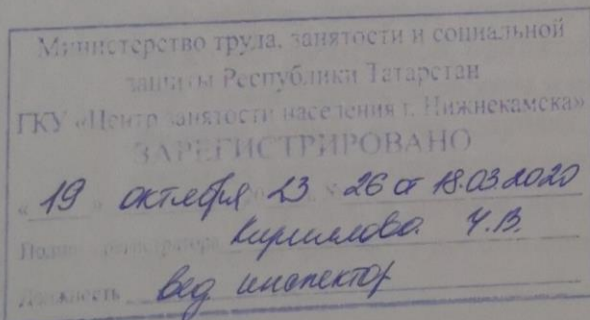 Министерство труда, занятости и социальной
защиты Республики Татарстан
ГКУ «Центр занятости населения г. Нижнекамска»
ЗАРЕГИСТРИРОВАНО
«19» октября 23 № 26 от 18.03.2020
регистратора Кириллова Ч.В.
Должность вед инспектор